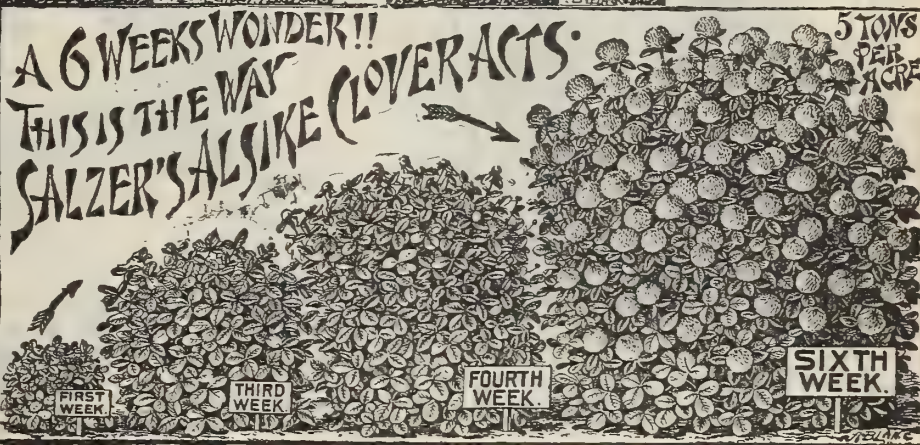 A 6 WEEKS WONDER!!
THIS IS THE WAY
SALZER'S ALSIKE CLOVER ACTS.
5 TONS
PER
ACRE
FIRST
WEEK.
THIRD
WEEK.
FOURTH
WEEK.
SIXTH
WEEK.